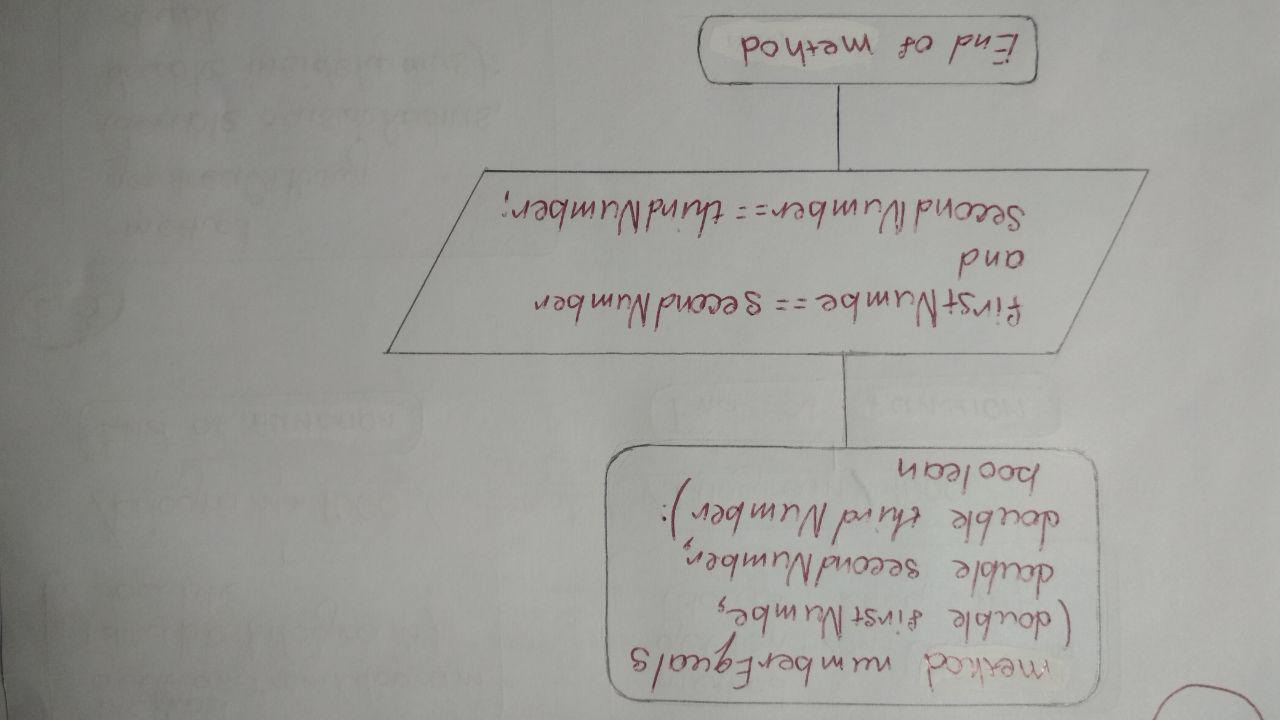 method numberEquals
(double firstNumbe,
double secondNumber,
double thirdNumber):
boolean
firstNumbe == secondNumber
and
secondNumber == thirdNumber;
End of method